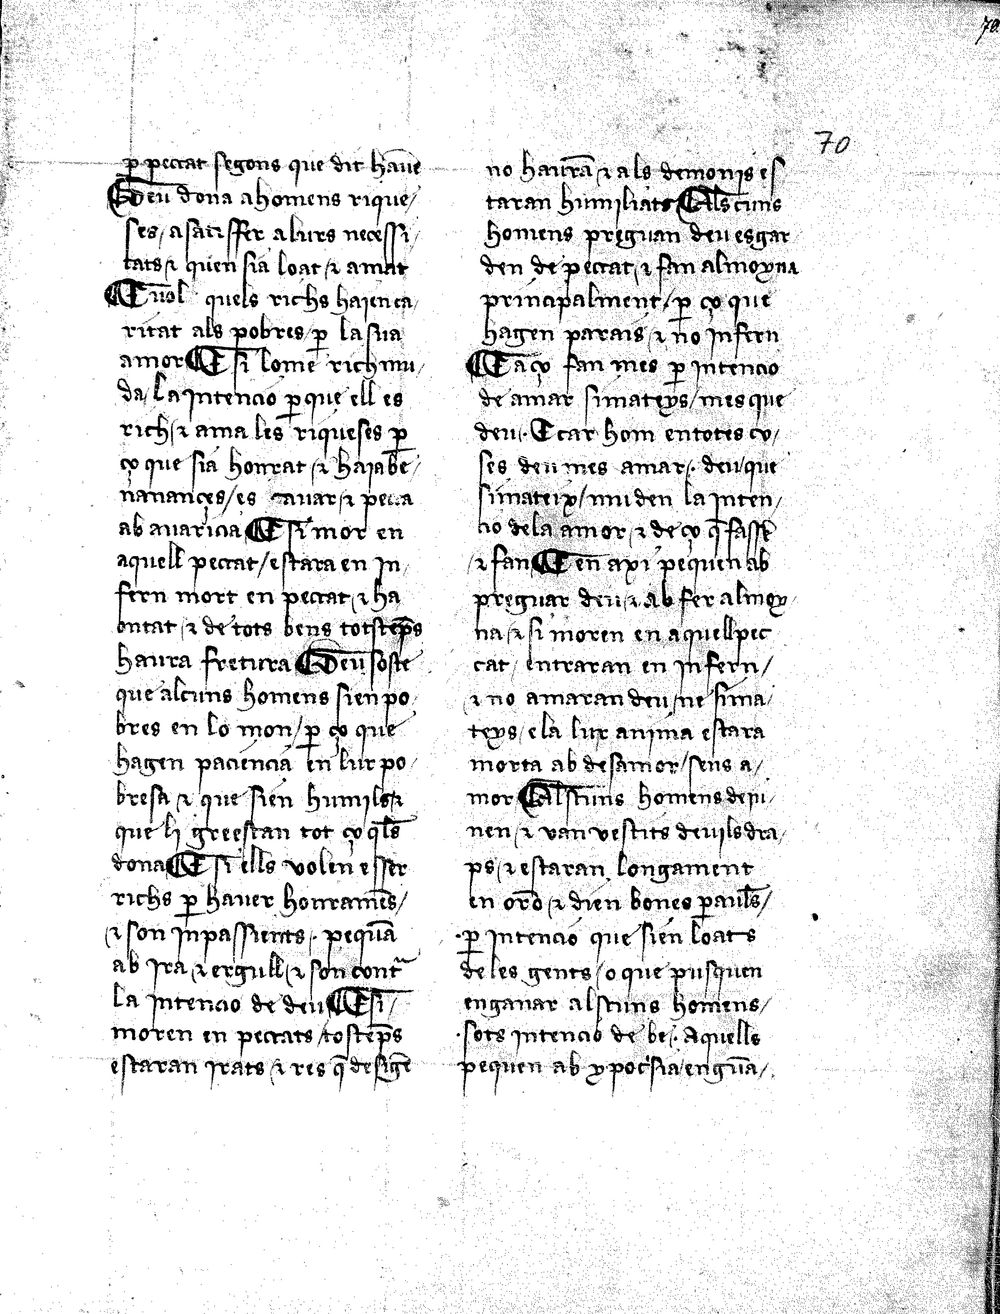 70
70
ꝑ peccat segons que dit hauē
Deu dona a homens rique/
ses/ a satisffer a lurs necessi/
tats ⁊ quen sia loat ⁊ amat
E uol quels richs haien ca/
ritat als pobres/ ꝑ la sua
amor E si lome rich mu/
da/ la intencio ꝑ que ell es
rich/ ⁊ ama les riqueses ꝑ
ço que sia honrat ⁊ haia be/
nanançes/ es auar ⁊ pecca
ab auaricia E si mor en
aquell peccat/ estara en in/
fern mort en peccat ⁊ ha
ontat ⁊ de tots bens totstēps
haura fretura Deu soste
que alcuns homens sien po/
bres en lo mon/ ꝑ ço que
hagen paciencia en lur po/
bresa ⁊ que sien humils ⁊
que li greescan tot ço q̄ls
dona E si ells volen esser
richs ꝑ hauer honramēs/
⁊ son inpassients/. pequā
ab ira ⁊ ergull ⁊ son contᵃ
la intencio de deu E si/
moren en peccats/ tostēps
estaran irats ⁊ res q̄ desigē
no haurā ⁊ als demonis es
taran humiliats Alscuns
homens preguan deu esgar
den de peccat ⁊ fan almoyna
principalment/ ꝑ ço que
hagen parais ⁊ no infern
E aço fan mes ꝑ intencio
de amar simateys/ mes que
deu/. E car hom en totes co/
ses deu mes amar/. deu/ que
simateix/ muden la inten/
cio de la amor ⁊ de ço q̄ fassē
⁊ fan E en axi pequen ab
preguar deu ⁊ ab fer almoy/
na ⁊ si moren en aquell pec
cat/ entraran en infern/
⁊ no amaran deu/ ne sima/
teys/ e la lur anima estara
morta ab desamor/ sens a/
mor Alscuns homens depi/
nen ⁊ van vestits de vils dra/
ps/ ⁊ estaran longament
en ordē ⁊ dien bones ꝑaules/
ꝑ intencio que sien loats
de les gents/ o que pusquen
enganar alscuns homens/
sots intencio de be/. Aquells
pequen ab ypocᵉsia/ enguā/